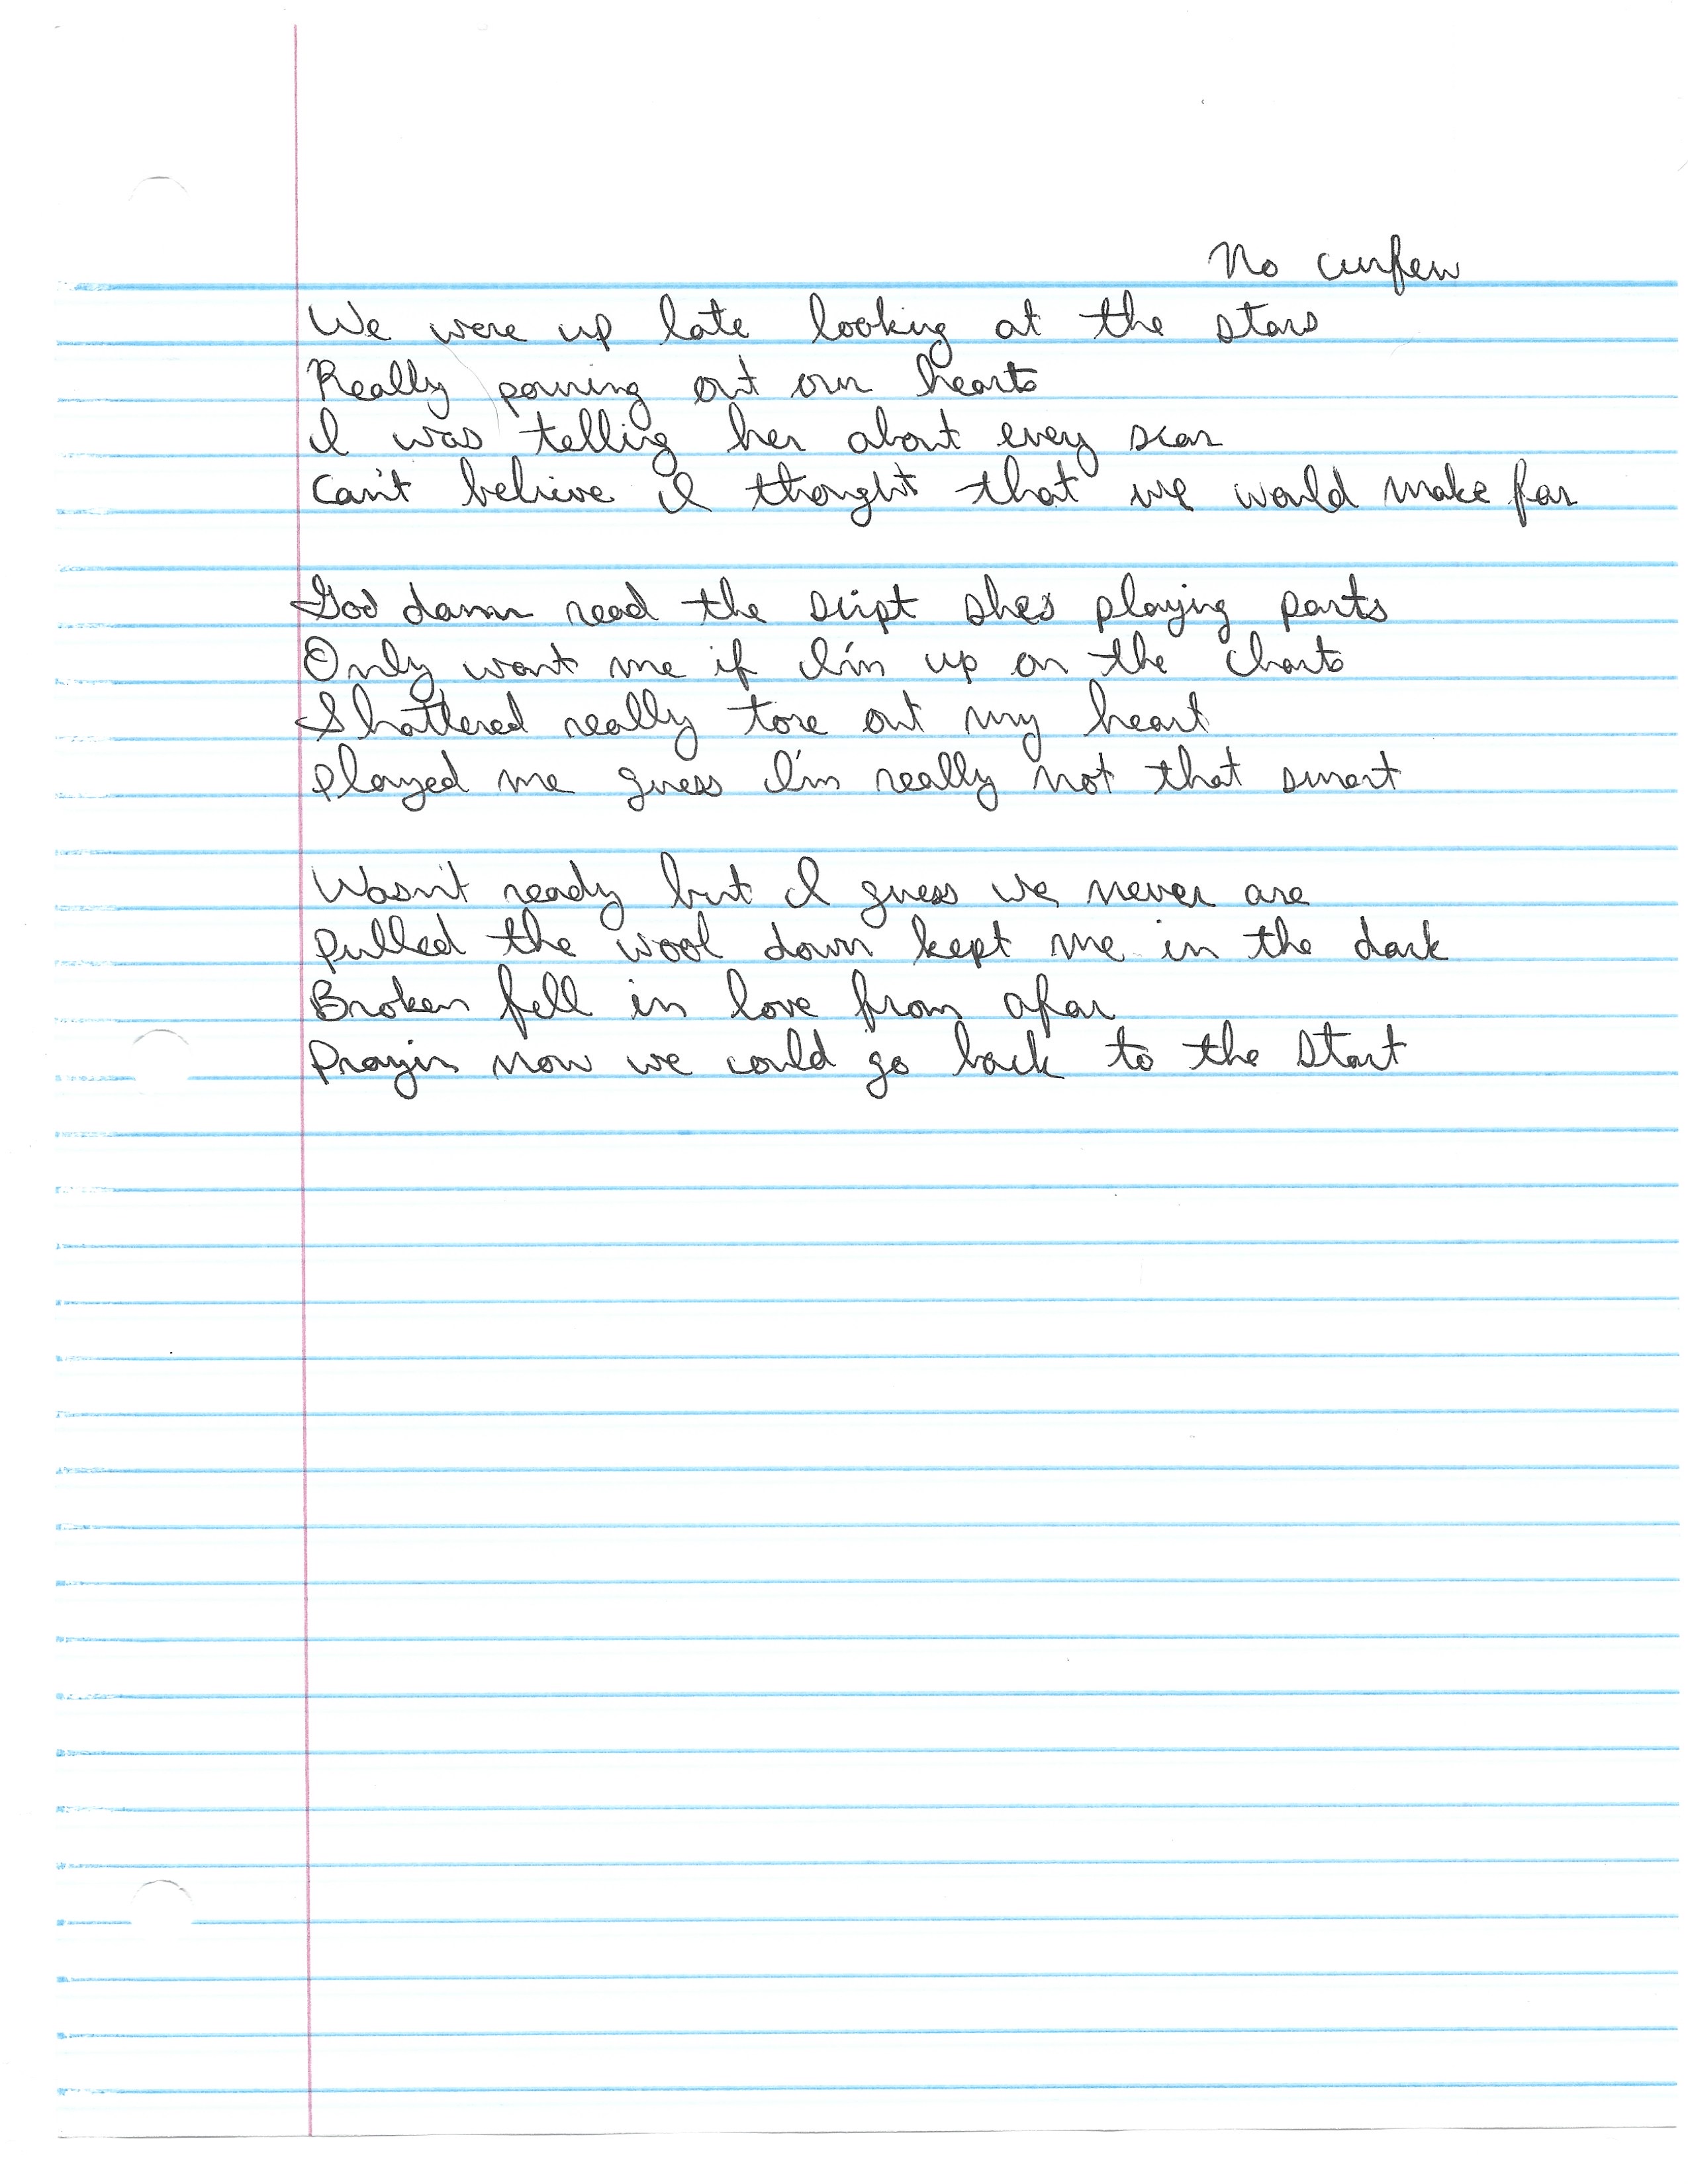 No curfew
We were up late looking at the stars
Really pouring out our hearts
I was telling her about every scar
Can't believe I thought that we would make far
God damn read the script shes playing parts
Only want me if I'm up on the charts
Shattered really tore out my heart
played me guess I'm really not that smart
Wasn't ready but I guess we never are
pulled the wool down kept me in the dark
Broken fell in love from afar
Prayin now we could go back to the start